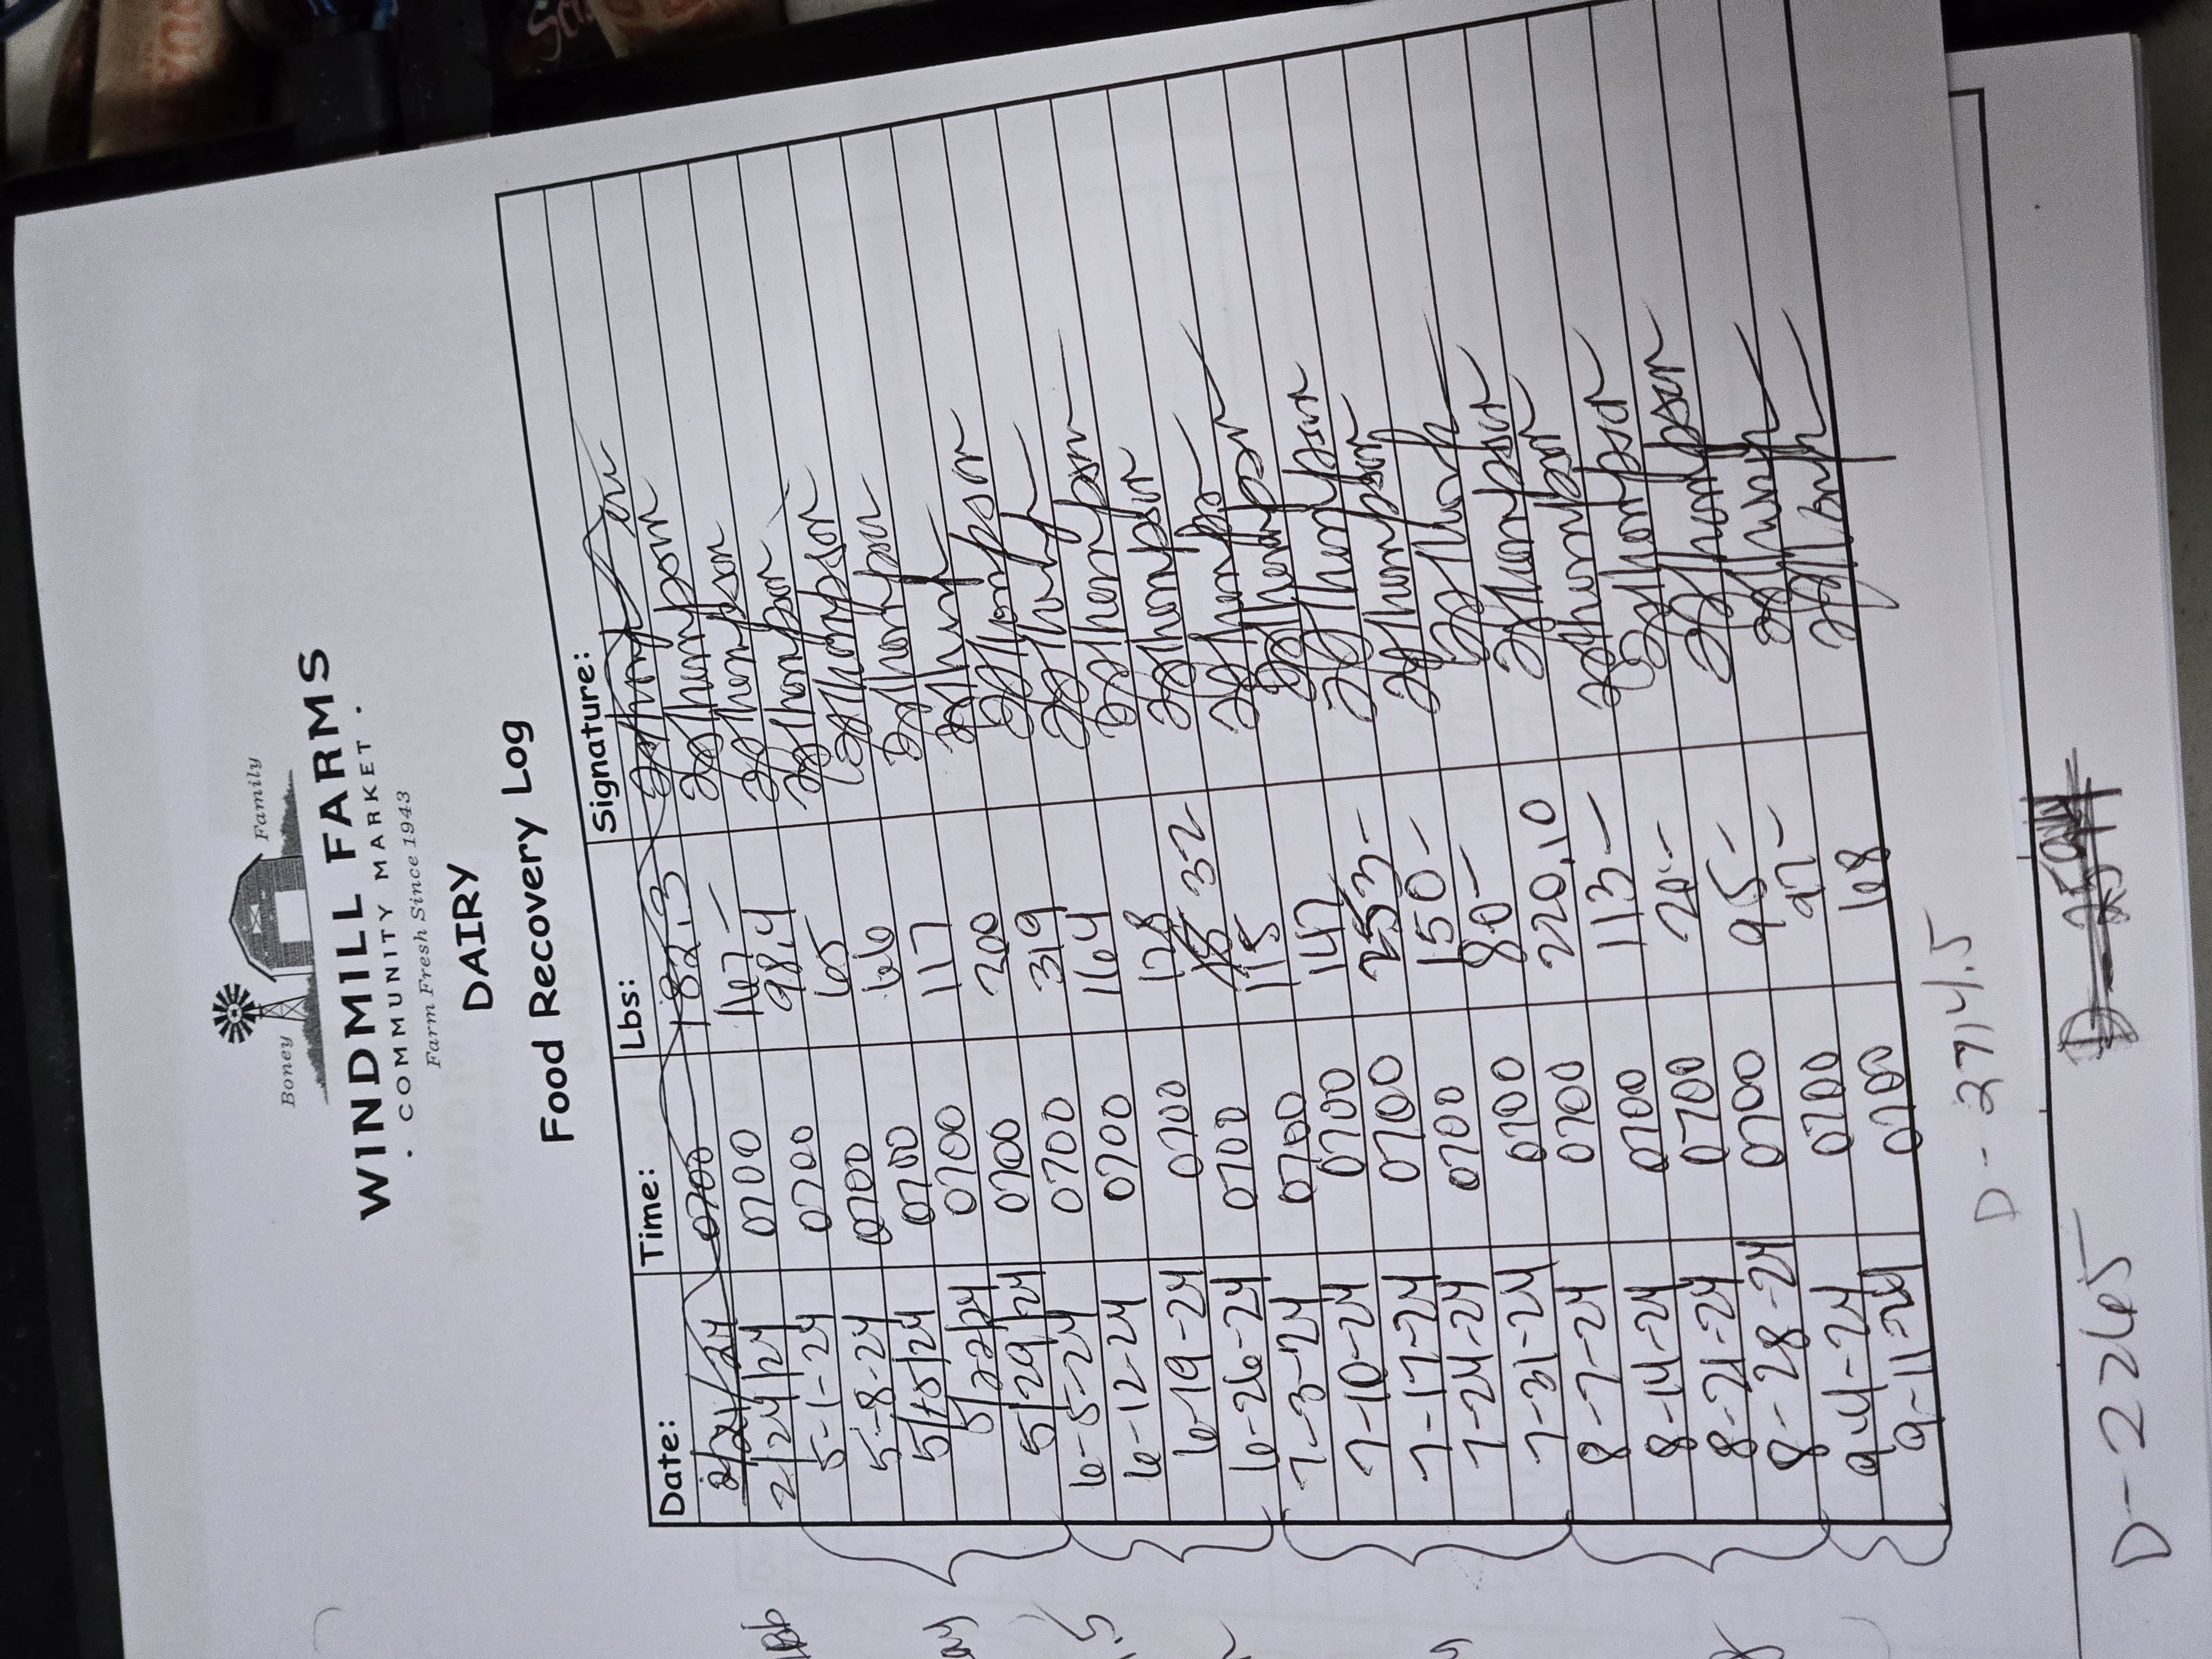 Boney Family
WINDMILL FARMS
· COMMUNITY MARKET ·
Farm Fresh Since 1943
DAIRY
Food Recovery Log
Date: Time: Lbs: Signature:
2/21/24 0700 182.3
2/24/24 0700 167- Thompson
5-1-24 0700 98.4 Thompson
5-8-24 0700 65 Thompson
5/15/24 0700 66 Thompson
5/22/24 0700 117 Thompson
5/29/24 0700 200
6-5-24 0700 319 Thompson
6-12-24 0700 164
6-19-24 0700 128 Thompson
6-26-24 0700 32 Thompson
7-3-24 0700 115
7-10-24 0700 147 Thompson
7-17-24 0700 253- Thompson
7-24-24 0700 150- Thompson
7-31-24 0700 80-
8-7-24 0700 220.10 Thompson
8-14-24 0700 113- Thompson
8-21-24 0700 20.- Thompson
8-28-24 0700 95- Thompson
9-4-24 0700 97-
9-11-24 0700 68
D- 2714.5
D-2265